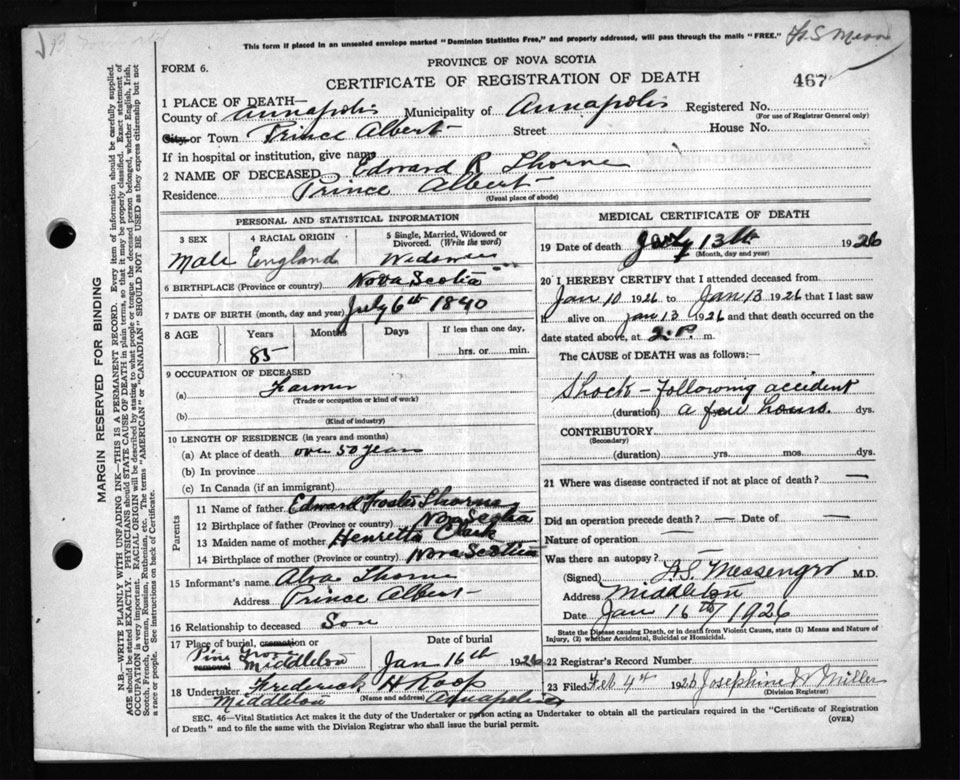 This form if placed in an unsealed envelope marked "Dominion Statistics Free," and properly addressed, will pass through the mails "FREE."
FORM 6.
PROVINCE OF NOVA SCOTIA
CERTIFICATE OF REGISTRATION OF DEATH
467
1 PLACE OF DEATH—
County of Annapolis Municipality of Annapolis Registered No.
(For use of Registrar General only)
City or Town Prince Albert Street House No.
If in hospital or institution, give name
2 NAME OF DECEASED Edward R Thorne
Residence Prince Albert
(Usual place of abode)
PERSONAL AND STATISTICAL INFORMATION
3 SEX 4 RACIAL ORIGIN 5 Single, Married, Widowed or Divorced. (Write the word)
Male England Widower
6 BIRTHPLACE (Province or country) Nova Scotia
7 DATE OF BIRTH (month, day and year) July 6th 1840
8 AGE Years Months Days If less than one day,
85 hrs. or min.
9 OCCUPATION OF DECEASED
(a) Farmer
(Trade or occupation or kind of work)
(b)
(Kind of industry)
10 LENGTH OF RESIDENCE (in years and months)
(a) At place of death over 50 years
(b) In province
(c) In Canada (if an immigrant)
Parents
11 Name of father Edward Foster Thorne
12 Birthplace of father (Province or country) Nova Scotia
13 Maiden name of mother Henrietta Clark
14 Birthplace of mother (Province or country) Nova Scotia
15 Informant's name Alva Thorne
Address Prince Albert
16 Relationship to deceased Son
17 Place of burial, cremation or removal Date of burial
Pine Grove Middleton Jan 16th 1926
18 Undertaker Frederick H Roop
Middleton (Name and address) Annapolis
MEDICAL CERTIFICATE OF DEATH
19 Date of death 13th 1926
(Month, day and year)
20 I HEREBY CERTIFY that I attended deceased from
Jan 10 1926 to Jan 13 1926 that I last saw
h alive on Jan 13 1926 and that death occurred on the
date stated above, at 2. P. m.
The CAUSE of DEATH was as follows:
Shock - following accident
(duration) a few hours. dys.
CONTRIBUTORY
(Secondary)
(duration) yrs. mos. dys.
21 Where was disease contracted if not at place of death? —
Did an operation precede death? — Date of —
Nature of operation —
Was there an autopsy? —
(Signed) Messenger M.D.
Address Middleton
Date Jan 16th/1926
State the Disease causing Death, or in death from Violent Causes, state (1) Means and Nature of Injury, (2) whether Accidental, Suicidal or Homicidal.
22 Registrar's Record Number
23 Filed Feb 4th 1926 Josephine W Miller
(Division Registrar)
SEC. 46—Vital Statistics Act makes it the duty of the Undertaker or person acting as Undertaker to obtain all the particulars required in the "Certificate of Registration
of Death" and to file the same with the Division Registrar who shall issue the burial permit. (OVER)
MARGIN RESERVED FOR BINDING
N.B.—WRITE PLAINLY WITH UNFADING INK—THIS IS A PERMANENT RECORD. Every item of information should be carefully supplied.
AGE should be stated EXACTLY. PHYSICIANS should STATE CAUSE OF DEATH in plain terms, so that it may be properly classified. Exact statement of
OCCUPATION is very important. RACIAL ORIGIN will be described by stating to what people or tongue the deceased person belonged, whether English, Irish,
Scotch, French, German, Russian, Ruthenian, etc. The terms "AMERICAN" or "CANADIAN" SHOULD NOT BE USED as they express citizenship but not
a race or people. See instructions on back of Certificate.